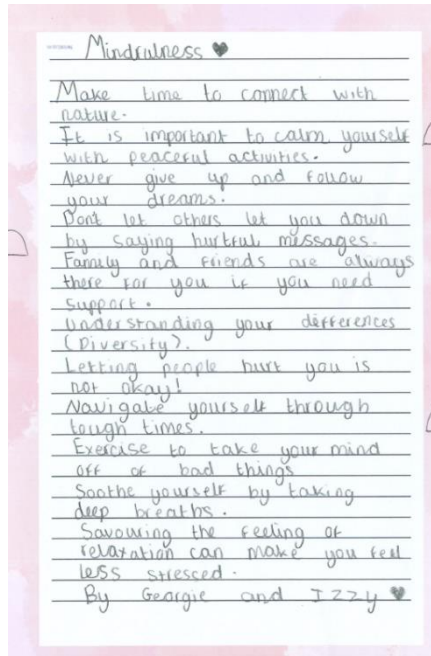 Mindfulness ♥
Make time to connect with
nature.
It is important to calm yourself
with peaceful activities.
Never give up and follow
your dreams.
Dont let others let you down
by saying hurtful messages.
Family and friends are always
there for you if you need
support.
Understanding your differences
(Diversity).
Letting people hurt you is
not okay!
Navigate yourself through
tough times.
Exercise to take your mind
off of bad things
Soothe yourself by taking
deep breaths.
Savouring the feeling of
relaxation can make you feel
less stresced.
By Georgie and Izzy ♥